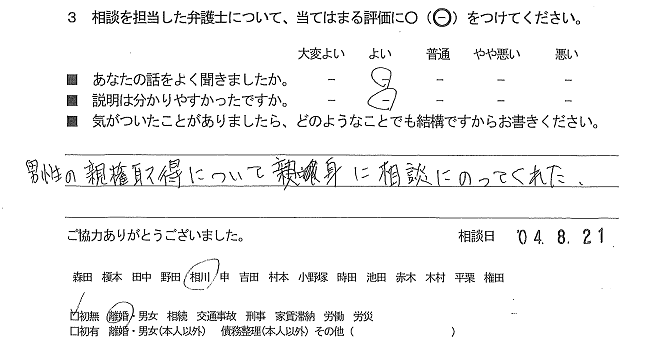 3 相談を担当した弁護士について、当てはまる評価に○（⊖）をつけてください。
大変よい よい 普通 やや悪い 悪い
■ あなたの話をよく聞きましたか。 － － － － －
■ 説明は分かりやすかったですか。 － － － － －
■ 気がついたことがありましたら、どのようなことでも結構ですからお書きください。
男性の親権取得について親身に相談にのってくれた。
ご協力ありがとうございました。 相談日 '04.8.21
森田 榎本 田中 野田 相川 申 吉田 村本 小野塚 時田 池田 赤木 木村 平栗 権田
□初無 離婚・男女 相続 交通事故 刑事 家賃滞納 労働 労災
□初有 離婚・男女(本人以外) 債務整理(本人以外) その他（ ）